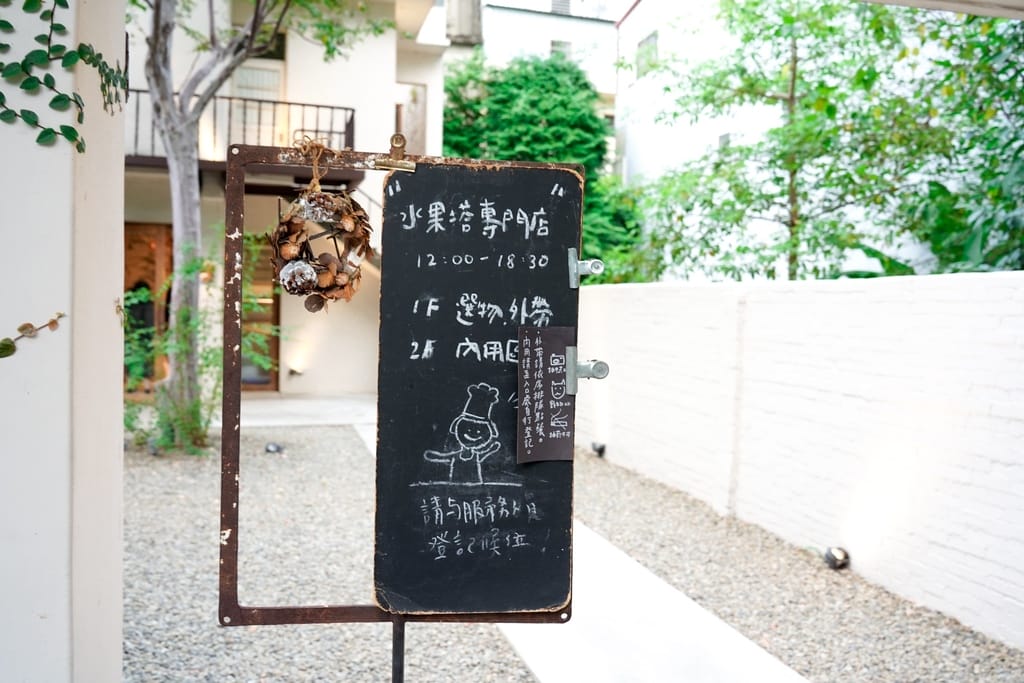 "水果塔專門店"
12:00-18:30
1F 選物.外帶
2F 內用區
·外帶請依序排隊點餐。
·內用請至入口處自行登記。
請与服務人員
登記候位!